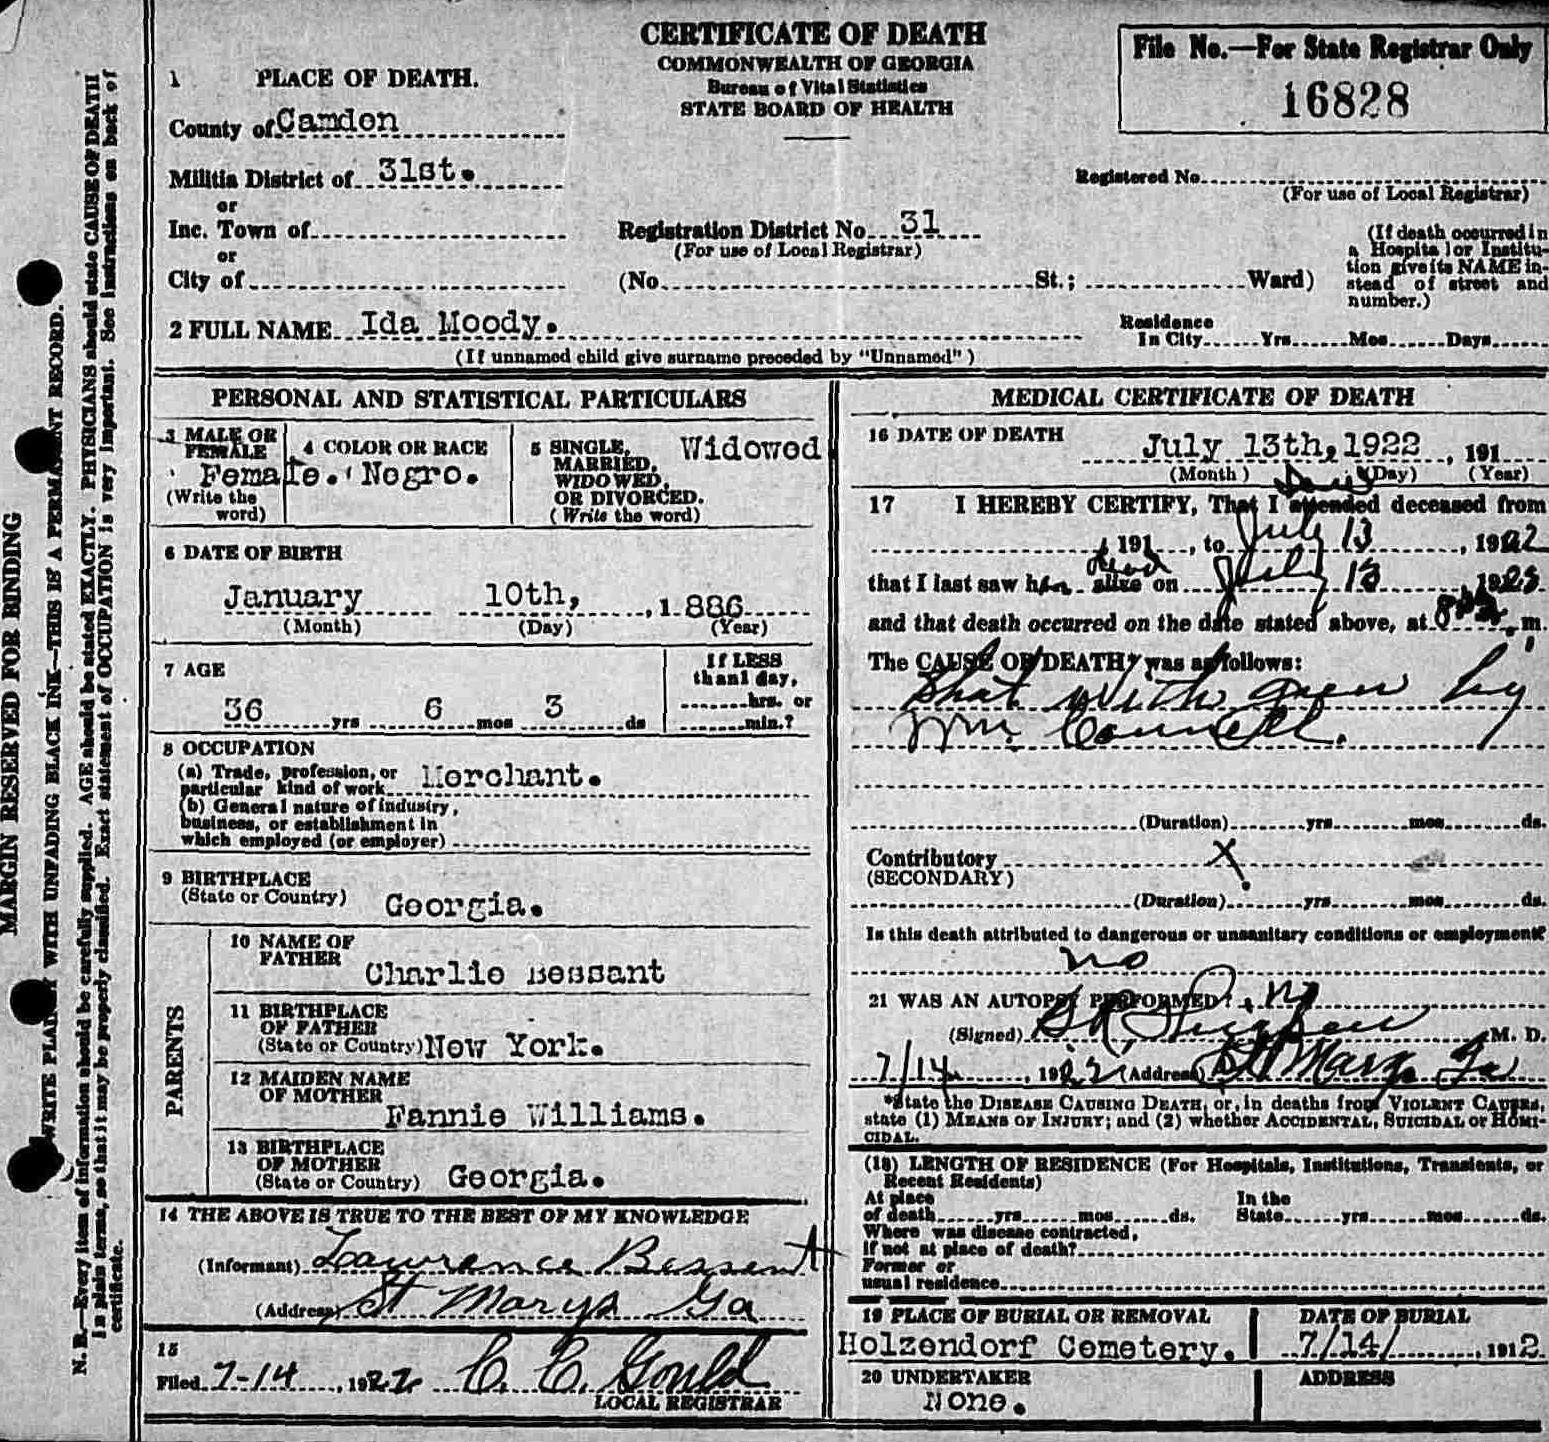 CERTIFICATE OF DEATH
COMMONWEALTH OF GEORGIA
Bureau of Vital Statistics
STATE BOARD OF HEALTH
File No.—For State Registrar Only
16828
1 PLACE OF DEATH.
County of Camden
Militia District of 31st.
or
Inc. Town of
or
City of
Registration District No. 31
(For use of Local Registrar)
(No. St.; Ward)
Registered No.
(For use of Local Registrar)
(If death occurred in
a Hospital or Institu-
tion give its NAME in-
stead of street and
number.)
2 FULL NAME Ida Moody.
(If unnamed child give surname preceded by "Unnamed")
Residence
In City Yrs. Mos. Days
PERSONAL AND STATISTICAL PARTICULARS
3 MALE OR
FEMALE
Female.
(Write the
word)
4 COLOR OR RACE
Negro.
5 SINGLE,
MARRIED,
WIDOWED,
OR DIVORCED.
(Write the word)
Widowed
6 DATE OF BIRTH
January 10th, , 1 886
(Month) (Day) (Year)
7 AGE
36 yrs 6 mos 3 ds
If LESS
than 1 day,
hrs. or
min.?
8 OCCUPATION
(a) Trade, profession, or
particular kind of work Merchant.
(b) General nature of industry,
business, or establishment in
which employed (or employer)
9 BIRTHPLACE
(State or Country) Georgia.
PARENTS
10 NAME OF
FATHER
Charlie Bessant
11 BIRTHPLACE
OF FATHER
(State or Country) New York.
12 MAIDEN NAME
OF MOTHER
Fannie Williams.
13 BIRTHPLACE
OF MOTHER
(State or Country) Georgia.
14 THE ABOVE IS TRUE TO THE BEST OF MY KNOWLEDGE
(Informant) Lawrence Bessent
(Address) St Marys Ga
15
Filed 7-14, 1922 C. C. Gould
LOCAL REGISTRAR
MEDICAL CERTIFICATE OF DEATH
16 DATE OF DEATH
July 13th, 1922, 191
(Month) (Day) (Year)
17 I HEREBY CERTIFY, That I attended deceased from
, 191 , to July 13, 1922
that I last saw h alive dead on July 13, 19
and that death occurred on the date stated above, at 8 m.
The CAUSE OF DEATH* was as follows:
Shot with gun by
Wm. Connell.
(Duration) yrs mos ds.
Contributory X
(SECONDARY)
(Duration) yrs mos ds.
Is this death attributed to dangerous or unsanitary conditions or employment?
no
21 WAS AN AUTOPSY PERFORMED?
(Signed) M. D.
7/14, 1922 (Address) St Marys Ga
*State the DISEASE CAUSING DEATH, or, in deaths from VIOLENT CAUSES,
state (1) MEANS OF INJURY; and (2) whether ACCIDENTAL, SUICIDAL or HOMI-
CIDAL.
(18) LENGTH OF RESIDENCE (For Hospitals, Institutions, Transients, or
Recent Residents)
At place
of death yrs mos ds.
In the
State yrs mos ds.
Where was disease contracted,
If not at place of death?
Former or
usual residence
19 PLACE OF BURIAL OR REMOVAL
Holzendorf Cemetery.
DATE OF BURIAL
7/14/ , 1912
20 UNDERTAKER
None.
ADDRESS
MARGIN RESERVED FOR BINDING
WRITE PLAINLY WITH UNFADING BLACK INK—THIS IS A PERMANENT RECORD.
N. B.—Every item of information should be carefully supplied. AGE should be stated EXACTLY. PHYSICIANS should state CAUSE OF DEATH
in plain terms, so that it may be properly classified. Exact statement of OCCUPATION is very important. See instructions on back of
certificate.